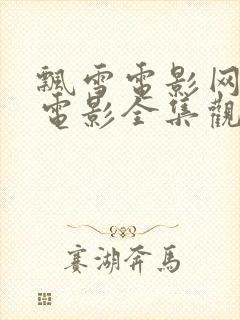 飄雪電影网
電影全集觀
赛湖奔馬